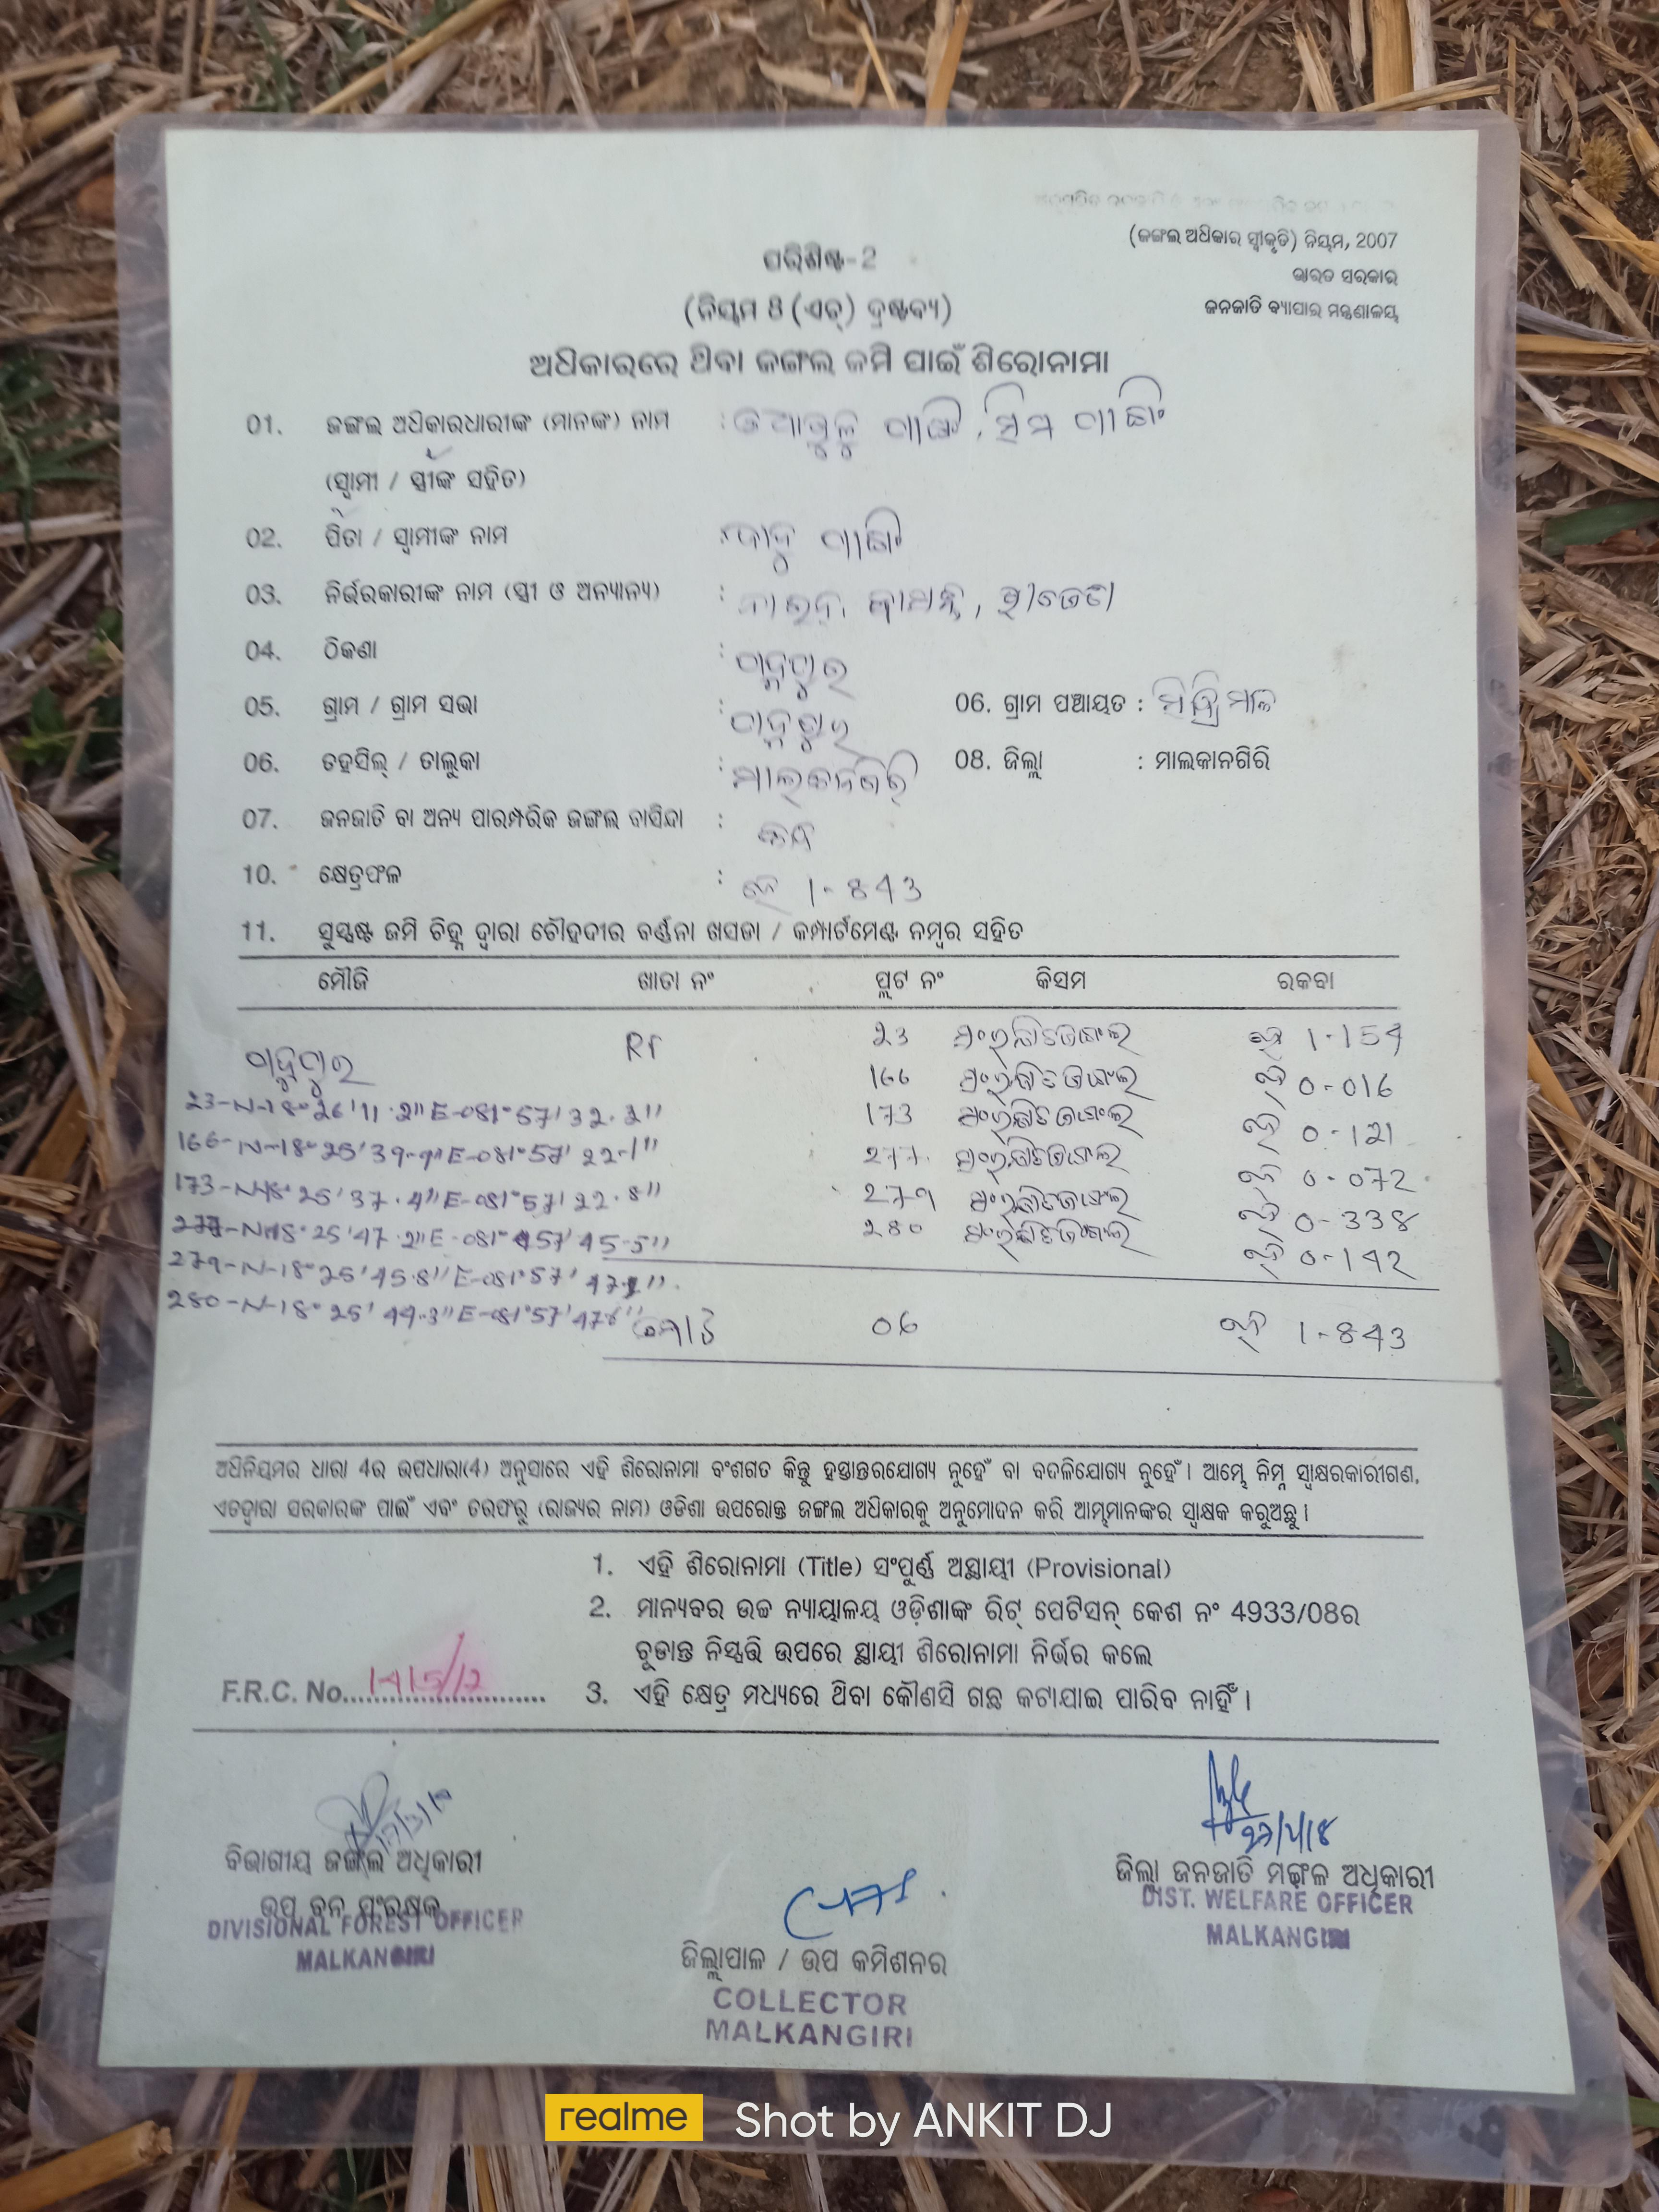 (ଜଙ୍ଗଲ ଅଧିକାର ସ୍ୱୀକୃତି) ନିୟମ, 2007
ଭାରତ ସରକାର
ଜନଜାତି ବ୍ୟାପାର ମନ୍ତ୍ରଣାଳୟ
ପରିଶିଷ୍ଟ-2
(ନିୟମ 8 (ଏଚ୍) ଦ୍ରଷ୍ଟବ୍ୟ)
ଅଧିକାରରେ ଥିବା ଜଙ୍ଗଲ ଜମି ପାଇଁ ଶିରୋନାମା
01. ଜଙ୍ଗଲ ଅଧିକାରଧାରୀଙ୍କ (ମାନଙ୍କ) ନାମ :
(ସ୍ୱାମୀ / ସ୍ତ୍ରୀଙ୍କ ସହିତ)
02. ପିତା / ସ୍ୱାମୀଙ୍କ ନାମ :
03. ନିର୍ଭରକାରୀଙ୍କ ନାମ (ସ୍ତ୍ରୀ ଓ ଅନ୍ୟାନ୍ୟ) :
04. ଠିକଣା :
05. ଗ୍ରାମ / ଗ୍ରାମ ସଭା : 06. ଗ୍ରାମ ପଞ୍ଚାୟତ :
06. ତହସିଲ୍ / ତାଲୁକା : ମାଲକାନଗିରି 08. ଜିଲ୍ଲା : ମାଲକାନଗିରି
07. ଜନଜାତି ବା ଅନ୍ୟ ପାରମ୍ପରିକ ଜଙ୍ଗଲ ବାସିନ୍ଦା :
10. କ୍ଷେତ୍ରଫଳ : ହେ 1-843
11. ସୁସ୍ପଷ୍ଟ ଜମି ଚିହ୍ନ ଦ୍ୱାରା ଚୌହଦୀର ବର୍ଣ୍ଣନା ଖସଡା / କମ୍ପାର୍ଟମେଣ୍ଟ ନମ୍ବର ସହିତ
ମୌଜି ଖାତା ନଂ ପ୍ଲଟ ନଂ କିସମ ରକବା
RF 23 ସଂରକ୍ଷିତ ଜଙ୍ଗଲ ହେ 1-154
166 ସଂରକ୍ଷିତ ଜଙ୍ଗଲ ହେ 0-016
173 ସଂରକ୍ଷିତ ଜଙ୍ଗଲ ହେ 0-121
277 ସଂରକ୍ଷିତ ଜଙ୍ଗଲ ହେ 0-072
279 ସଂରକ୍ଷିତ ଜଙ୍ଗଲ ହେ 0-338
280 ସଂରକ୍ଷିତ ଜଙ୍ଗଲ ହେ 0-142
23-N-18°26'11.2"E-081°57'32.2"
166-N-18°25'39.9"E-081°57'22.1"
173-N-18°25'37.4"E-081°57'22.8"
277-N-18°25'47.2"E-081°57'45.5"
279-N-18°25'45.8"E-081°57'
280-N-18°25'44.3"E-081°57'47.6"
ମୋଟ 06 ହେ 1-843
ଅଧିନିୟମର ଧାରା 4ର ଉପଧାରା(4) ଅନୁସାରେ ଏହି ଶିରୋନାମା ବଂଶଗତ କିନ୍ତୁ ହସ୍ତାନ୍ତରଯୋଗ୍ୟ ନୁହେଁ ବା ବଦଳିଯୋଗ୍ୟ ନୁହେଁ । ଆମ୍ଭେ ନିମ୍ନ ସ୍ୱାକ୍ଷରକାରୀଗଣ,
ଏତଦ୍ଦ୍ୱାରା ସରକାରଙ୍କ ପାଇଁ ଏବଂ ତରଫରୁ (ରାଜ୍ୟର ନାମ) ଓଡିଶା ଉପରୋକ୍ତ ଜଙ୍ଗଲ ଅଧିକାରକୁ ଅନୁମୋଦନ କରି ଆମ୍ଭମାନଙ୍କର ସ୍ୱାକ୍ଷକ କରୁଅଛୁ ।
1. ଏହି ଶିରୋନାମା (Title) ସଂପୂର୍ଣ୍ଣ ଅସ୍ଥାୟୀ (Provisional)
2. ମାନ୍ୟବର ଉଚ୍ଚ ନ୍ୟାୟାଳୟ ଓଡ଼ିଶାଙ୍କ ରିଟ୍ ପେଟିସନ୍ କେଶ ନଂ 4933/08ର
ଚୂଡାନ୍ତ ନିସ୍ପତ୍ତି ଉପରେ ସ୍ଥାୟୀ ଶିରୋନାମା ନିର୍ଭର କଲେ
F.R.C. No. 1415/12
3. ଏହି କ୍ଷେତ୍ର ମଧ୍ୟରେ ଥିବା କୌଣସି ଗଛ କଟାଯାଇ ପାରିବ ନାହିଁ ।
ବିଭାଗୀୟ ଜଙ୍ଗଲ ଅଧିକାରୀ
ଉପ ବନ ସଂରକ୍ଷକ
DIVISIONAL FOREST OFFICER
MALKANGIRI
ଜିଲ୍ଲାପାଳ / ଉପ କମିଶନର
COLLECTOR
MALKANGIRI
ଜିଲ୍ଲା ଜନଜାତି ମଙ୍ଗଳ ଅଧିକାରୀ
DIST. WELFARE OFFICER
MALKANGIRI
realme Shot by ANKIT DJ